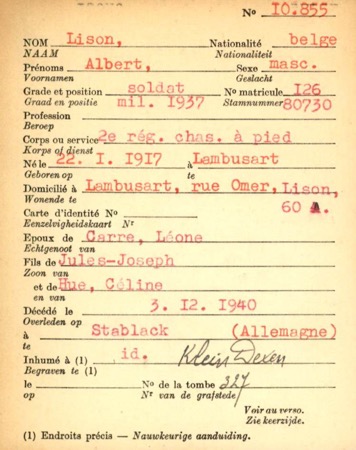 No 10.855
NOM Lison, Nationalité belge
NAAM Nationaliteit
Prénoms Albert, Sexe masc.
Voornamen Geslacht
Grade et position soldat No matricule I26
Graad en positie mil. 1937 Stamnummer 80730
Profession
Beroep
Corps ou service 2e rég. chas. à pied
Korps of dienst
Né le 22. I. 1917 à Lambusart
Geboren op te
Domicilié à Lambusart, rue Omer, Lison,
Wonende te 60
Carte d'identité No
Eenzelvigheidskaart Nr
Epoux de Carre, Léone
Echtgenoot van
Fils de Jules-Joseph
Zoon van
et de Hue, Céline
en van
Décédé le 3. 12. 1940
Overleden op
à Stablack (Allemagne)
te
Inhumé à (1) id. Klein Dexen
Begraven te (1)
le No de la tombe 327
op Nr van de grafstede
Voir au verso.
Zie keerzijde.
(1) Endroits précis — Nauwkeurige aanduiding.